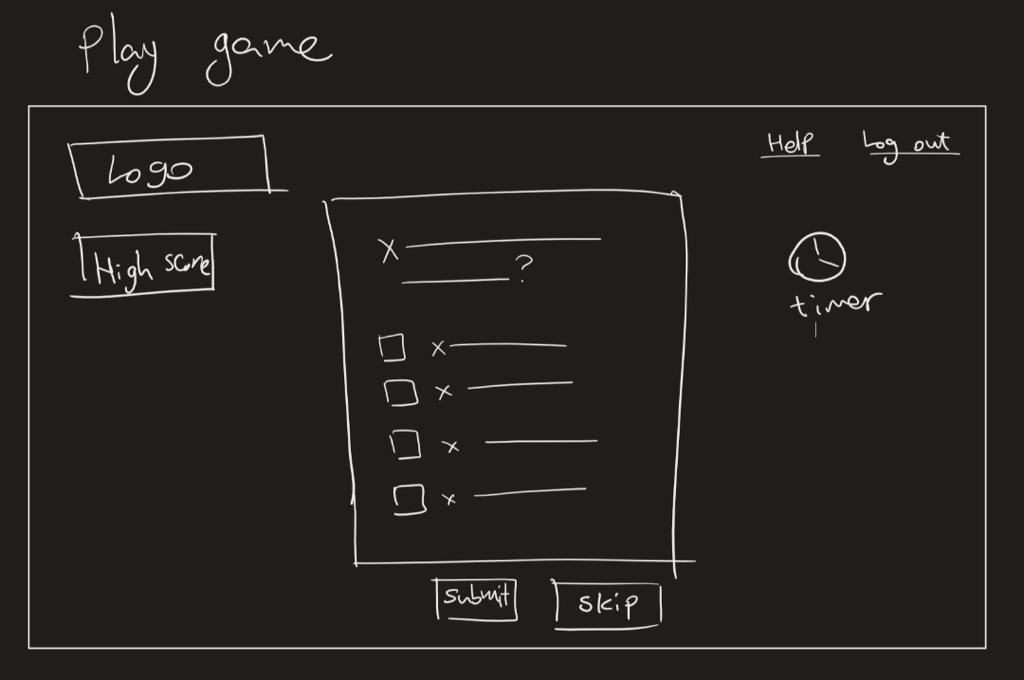 Play game
Logo
Help
Log out
High score
X
?
timer
x
x
x
x
Submit
Skip